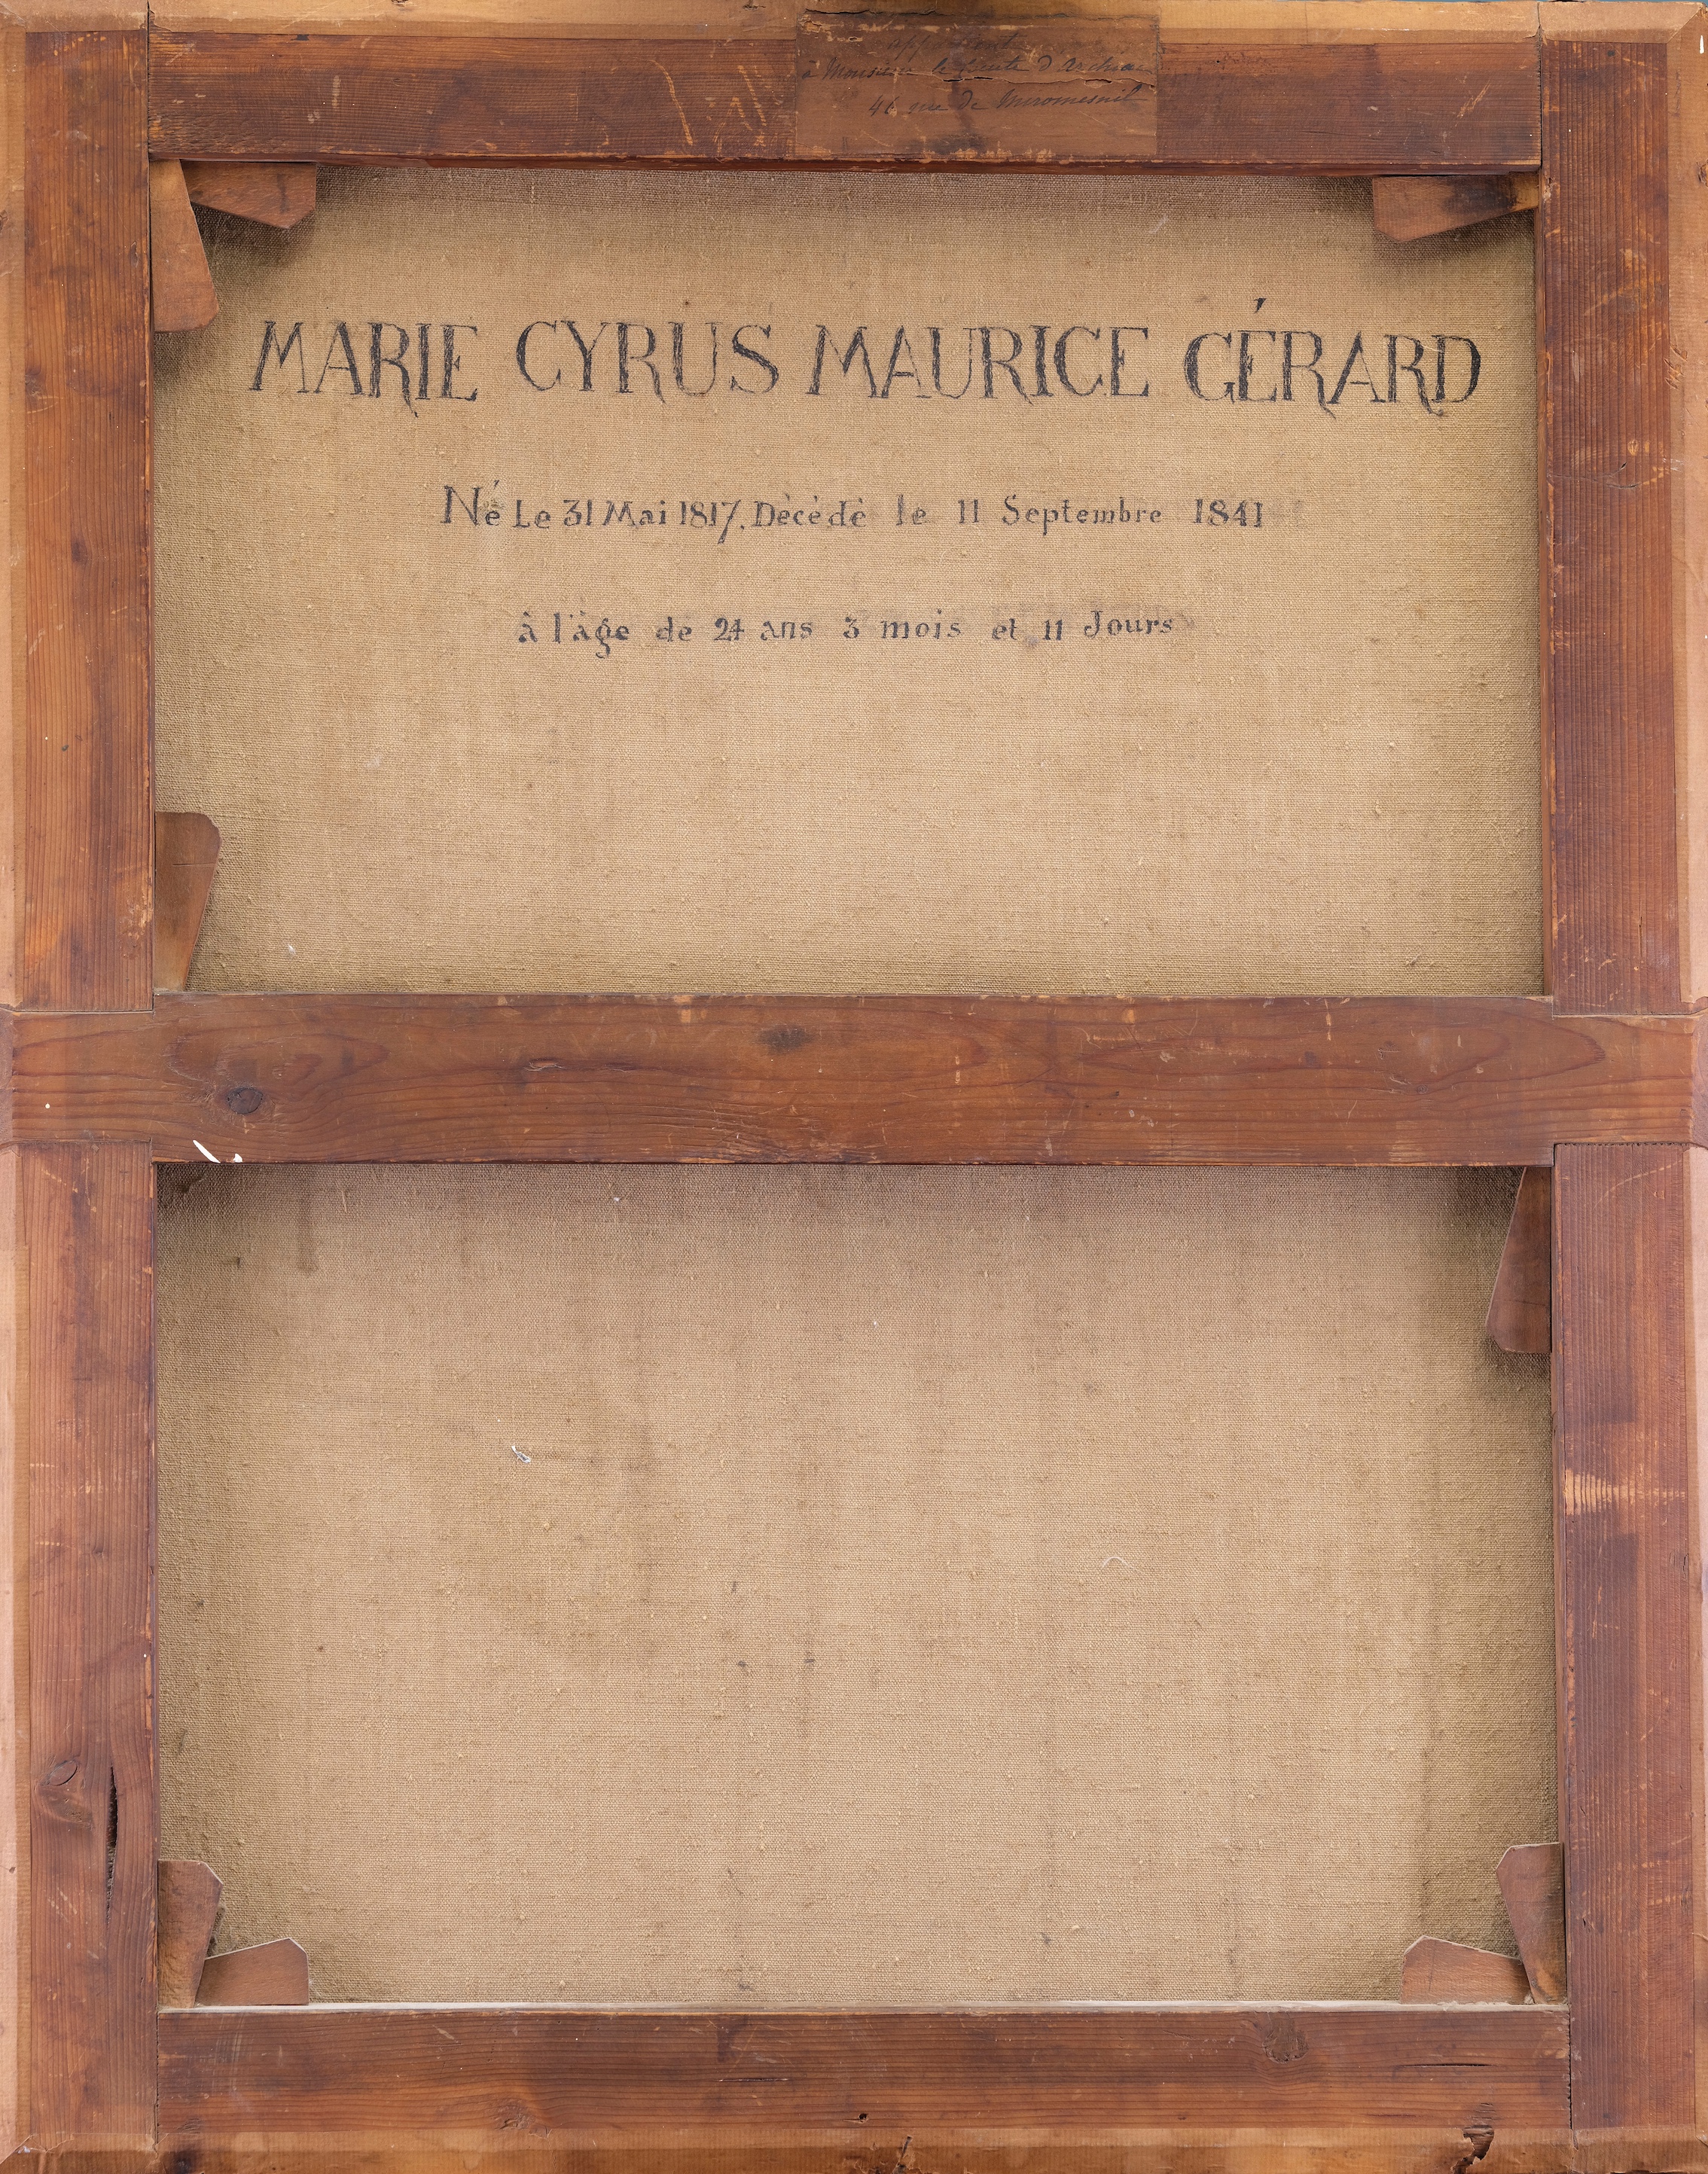 appartient
à Monsieur le Comte d'Archiac
46 rue de Miromesnil
MARIE CYRUS MAURICE GÉRARD
Né Le 31 Mai 1817, Dècèdè le 11 Septembre 1841
à l'àge de 24 ans 3 mois et 11 Jours